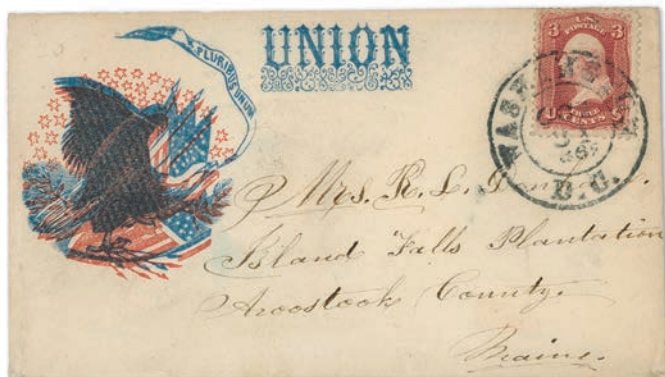 E PLURIBUS UNUM
UNION
3 U.S. POSTAGE 3
THREE
CENTS
WASHINGTON
D.C.
Mrs. R. L.
Island Falls Plantation
Aroostook County.
Maine.